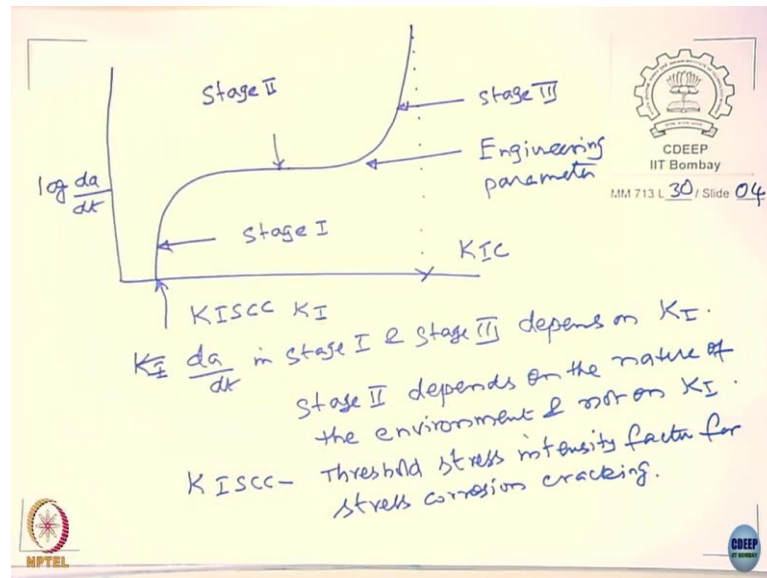 Stage II
Stage III
Engineering
parameter
log da/dt
Stage I
KIC
KISCC KI
KI da/dt in Stage I & Stage III depends on KI.
Stage II depends on the nature of
the environment & not on KI.
KISCC - Threshold stress intensity factor for
stress corrosion cracking.
CDEEP
IIT Bombay
MM 713 L 30 / Slide 04
NPTEL
CDEEP
IIT BOMBAY